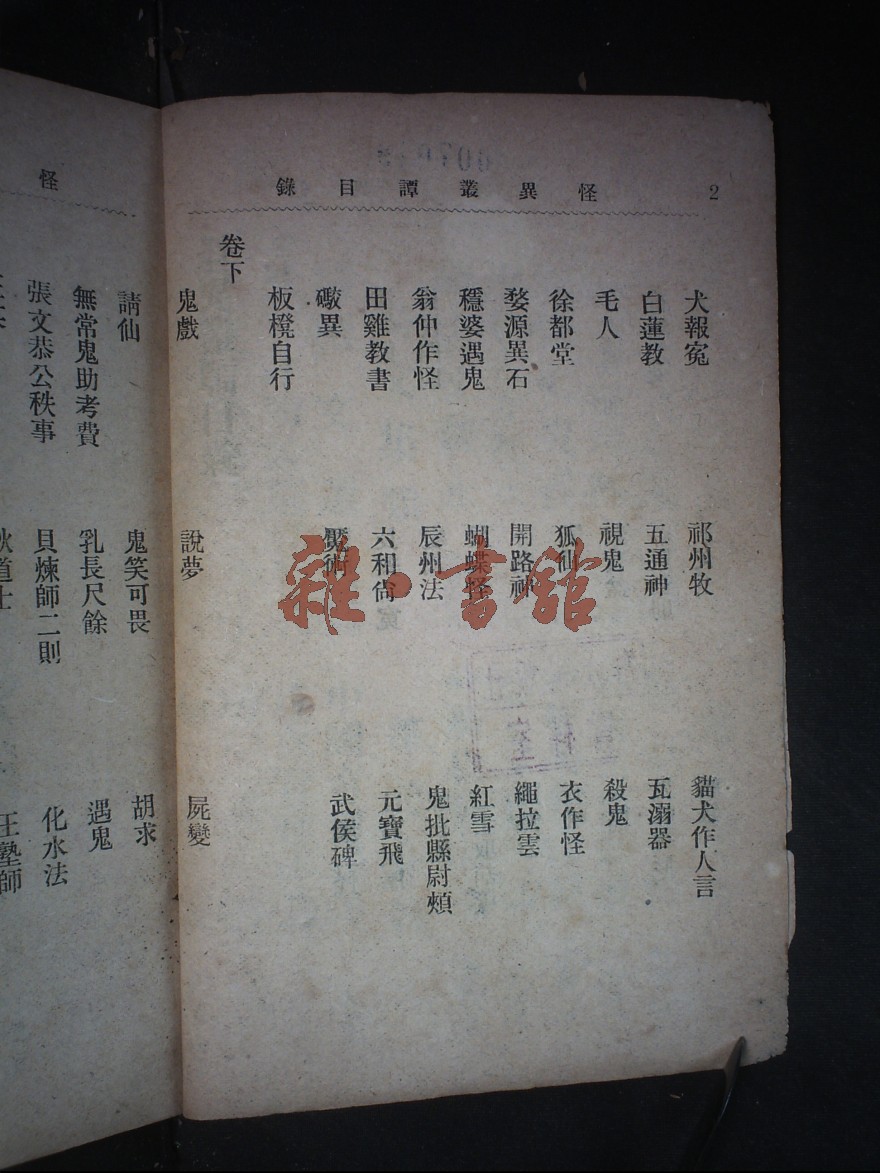 2
怪異叢譚目錄
犬報寃 祁州牧 貓犬作人言
白蓮教 五通神 瓦溺器
毛人 視鬼 殺鬼
徐都堂 狐仙 衣作怪
婺源異石 開路神 繩拉雲
穩婆遇鬼 蝴蝶怪 紅雪
翁仲作怪 辰州法 鬼批縣尉頰
田雞教書 六和尙 元寶飛
礮異 魘術 武侯碑
板櫈自行
卷下
鬼戲 說夢 屍變
怪
請仙 鬼笑可畏 胡求
無常鬼助考費 乳長尺餘 遇鬼
張文恭公秩事 貝煉師二則 化水法
道士 王塾師
雜·書館